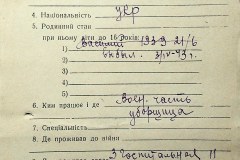 4. Національність укр
5. Родинний стан
при ньому діти до 16 років:
1) Василий 1939 21/6
2)
3)
4)
5)
6. Ким працює і де Воен. часть
уборщица
7. Спеціальність
8. Де проживало до війни
Госпитальная 11